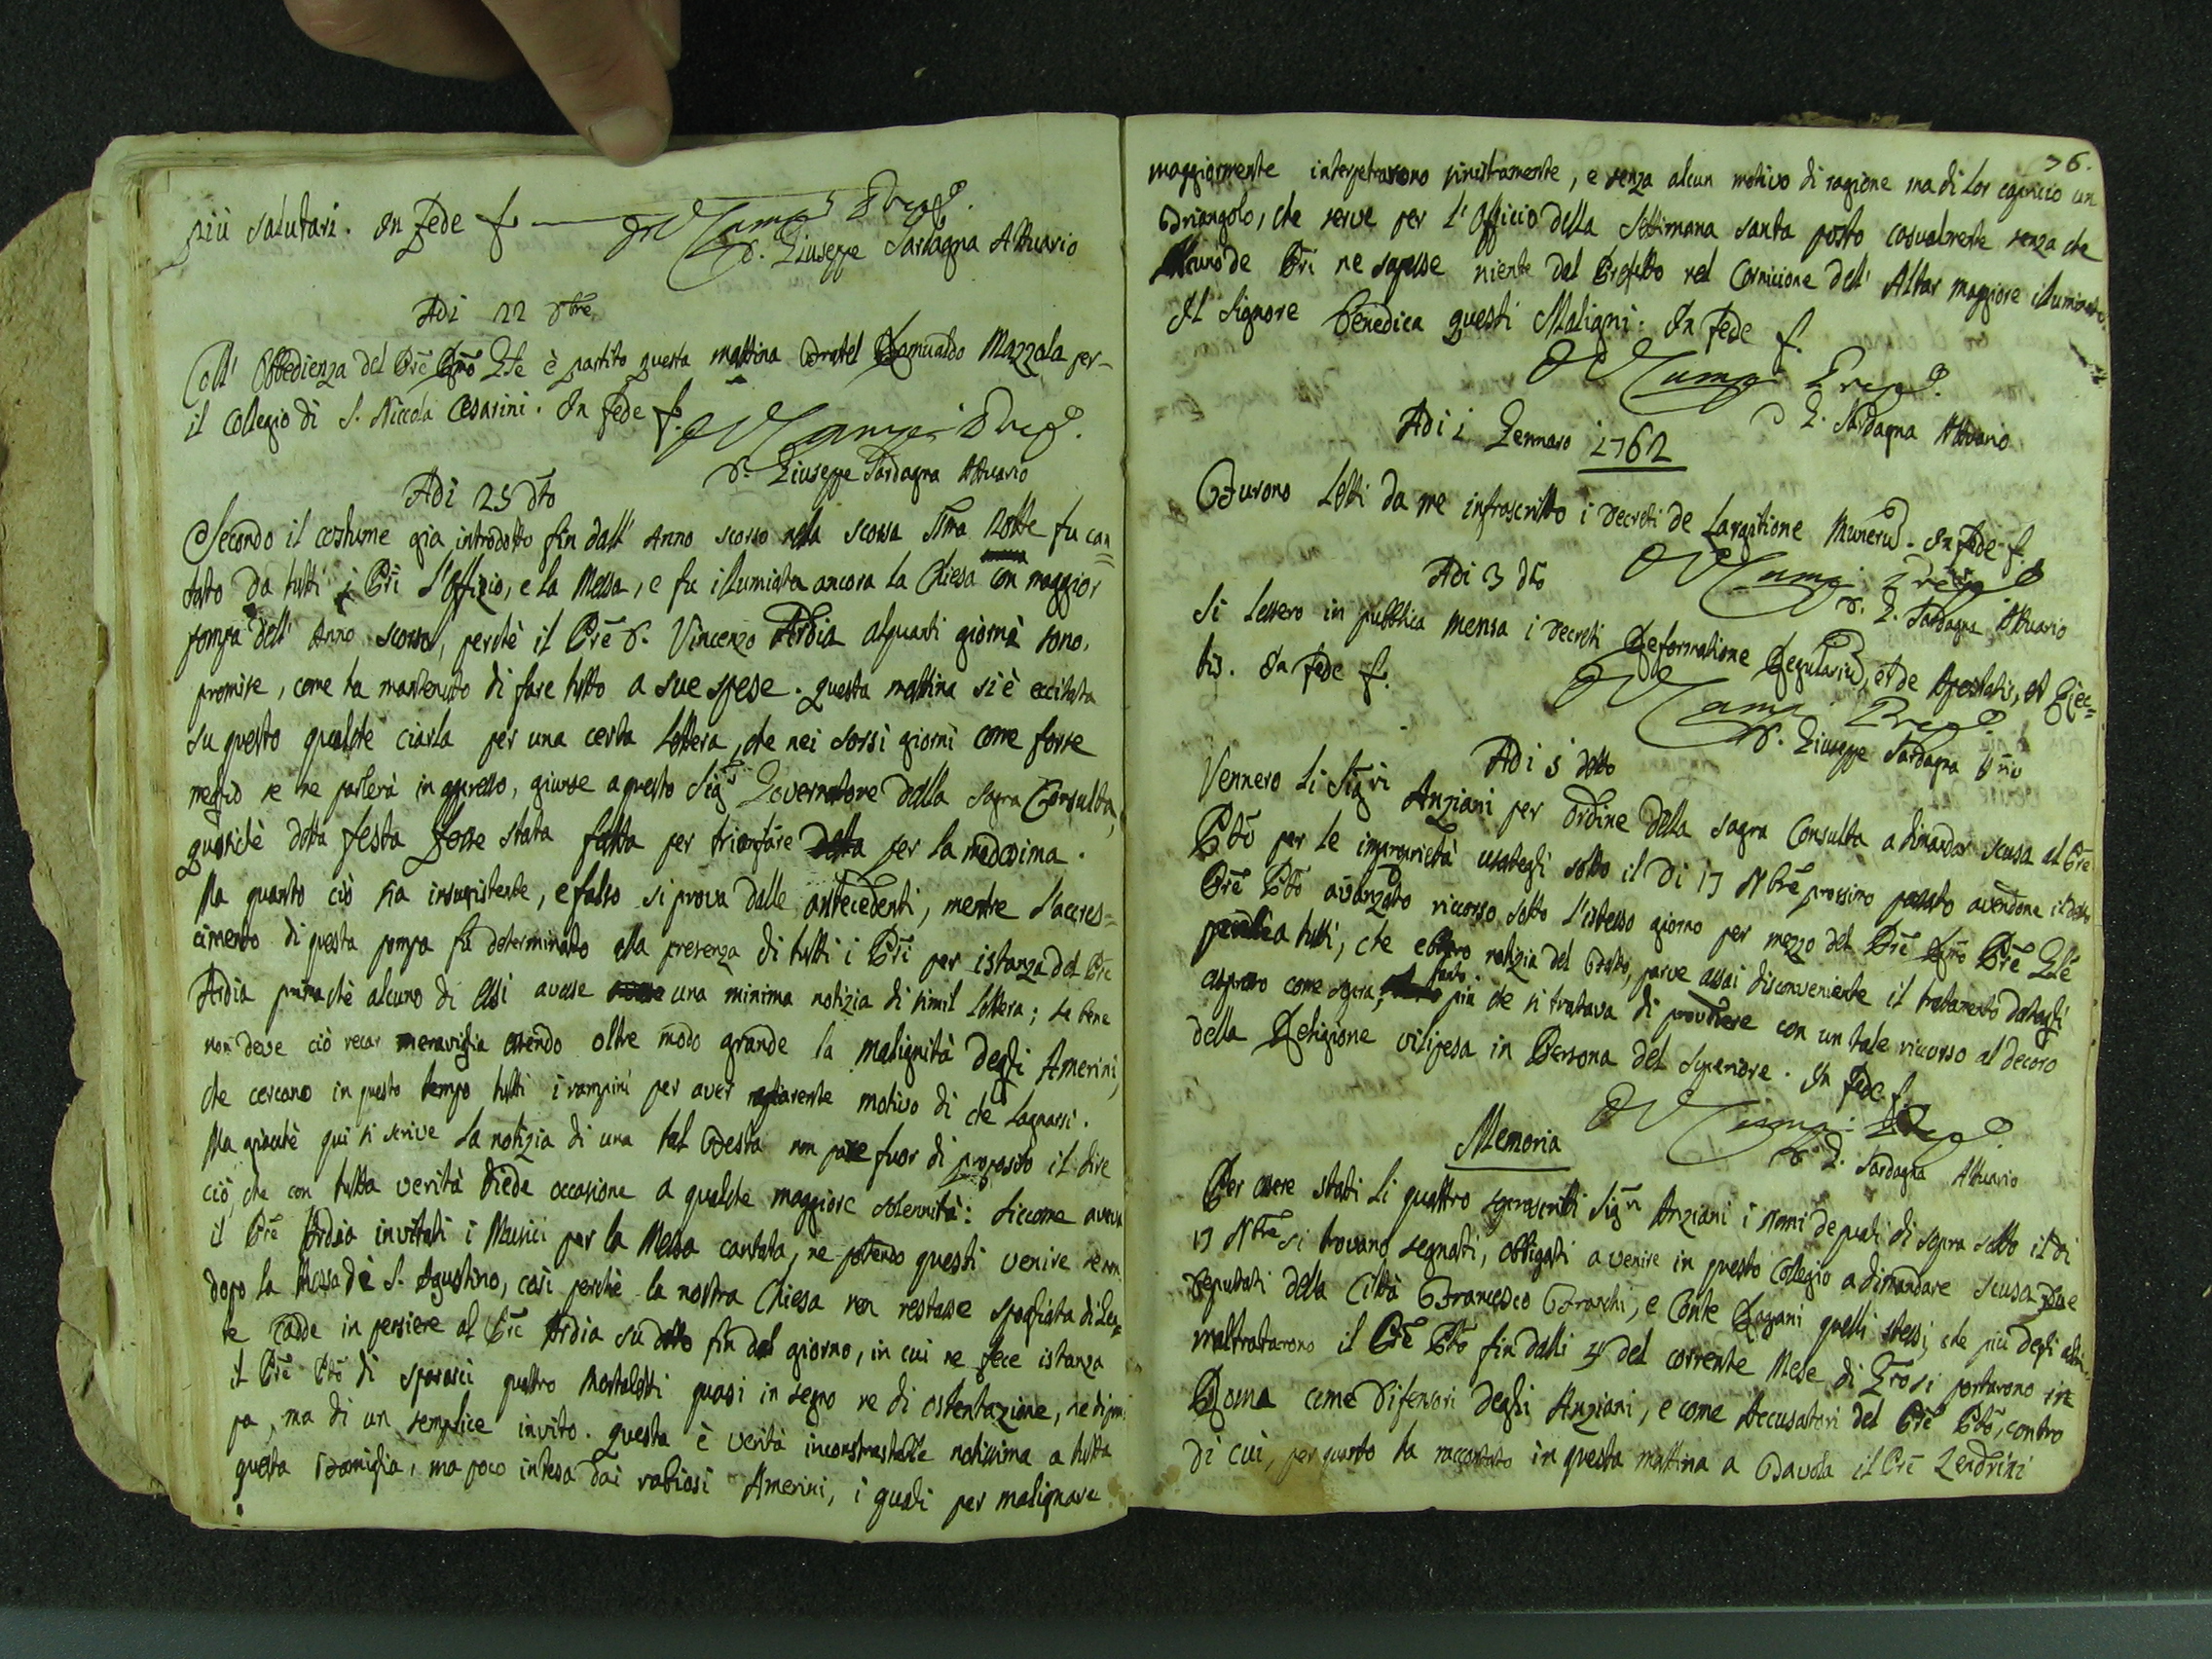 più salutari. In Fede f.
D. Giuseppe Sardagna Attuario
Adi 22 Xbre
Coll' Obbedienza del Pre Rmo Gle è partito questa mattina Fratel Romualdo Mazzola per
il Collegio di S. Niccola Cesarini. In Fede f.
D. Giuseppe Sardagna Attuario
Adi 25 dto
Secondo il costume gia introdotto fin dall' Anno scorso nella scorsa Sma Notte fu can=
tato da tutti i Pri l'Offizio, e la Messa, e fu illumiata ancora la Chiesa con maggior
pompa dell' Anno scorso, perchè il Pre D. Vincenzo Ardia alquanti giorni sono,
promise, come ha mantenuto di fare tutto a sue spese. questa mattina si è eccitata
su questo qualche ciarla per una certa lettera, che nei scorsi giorni come forse
meglio se ne parlerà in appresso, giunse a questo Sigr Governatore della Sagra Consulta,
quasichè detta festa fosse stata fatta per trionfare per la medesima.
Ma quanto ciò sia insussistente, e falso si prova dalle antecedenti, mentre l'accres=
cimento di questa pompa fu determinato alla presenza di tutti i Pri per istanza del Pre
Ardia primachè alcuno di essi avesse una minima notizia di simil lettera; se bene
non deve ciò recar meraviglia essendo oltre modo grande la malignità degli Amerini,
che cercano in questo tempo tutti i rampini per aver apparente motivo di che lagnarsi.
Ma giacchè qui si scrive la notizia di una tal Festa non pare fuor di proposito il dire
ciò, che con tutta verità diede occasione a qualche maggiore solennità: Siccome aveva
il Pre Ardia invitati i Musici per la Messa cantata, ne potendo questi venire se non
dopo la Messa di S. Agustino, così perchè la nostra Chiesa non restasse spogliata di Gen=
te cadde in pensiere al Pre Ardia sudetto fin dal giorno, in cui ne fece istanza
il Pre Pto di spararci quattro Mortaletti quasi in segno ne di ostentazione, ne di pom
pa, ma di un semplice invito. questa è verità incontrastabile notissima a tutta
questa Famiglia, ma poco intesa dai rabiosi Amerini, i quali per malignare
76.
maggiormente interpetrarono sinistramente, e senza alcun motivo di ragione ma di lor capriccio un
Triangolo, che serve per l'Officio della Settimana santa posto casualmente senza che
Alcuno de Pri ne sapesse niente dal Prefetto nel Cornicione dell' Altar maggiore illuminato.
Il Signore benedica questi Maligni. In fede f.
D G. Sardagna Attuario
Adi 1 Gennaro 1762
Furono letti da me infrascritto i decreti de Largitione Muneru. In Fede f.
D. G. Sardagna Attuario
Adi 3 dto
Si lessero in pubblica mensa i decreti Reformatione Regulariu, et de Apostatis, et Ejec=
tis. In fede f.
D. Giuseppe Sardagna
Adi 5 detto
Vennero li Sigri Anziani per ordine della Sagra Consulta a dimandar scusa al Pre
Pto per le improprietà usategli sotto il di 17 Nbre prossimo passato avendone il detto
Pre Pto avanzato riccorso sotto l'istesso giorno per mezzo del Pre Rmo Pre Gle
a tutti, che ebbero notizia del fatto, parve assai disconveniente il trattamento datogli
aspraro come sopra, tanto più che si trattava di provedere con un tale riccorso al decoro
della Religione vilipesa in Persona del Superiore. In Fede f.
D. G. Sardagna Attuario
Memoria
Per essere stati li quattro soprascritti Sigri Anziani i Nomi de quali di sopra sotto il di
17 Nbre si trovano segnati, obbligati a venire in questo Collegio a dimandare scusa Due
Deputati della Città Francesco Franchi, e Conte Ragani quelli stessi, che più degli altri
maltrattarono il Pre Pto fin dalli 4 del corrente Mese di Gro si portarono in
Roma come Difensori degli Anziani, e come Accusatori del Pre Pto, contro
di cui, per quanto ha raccontato in questa mattina a Tavola il Pre Zendrini